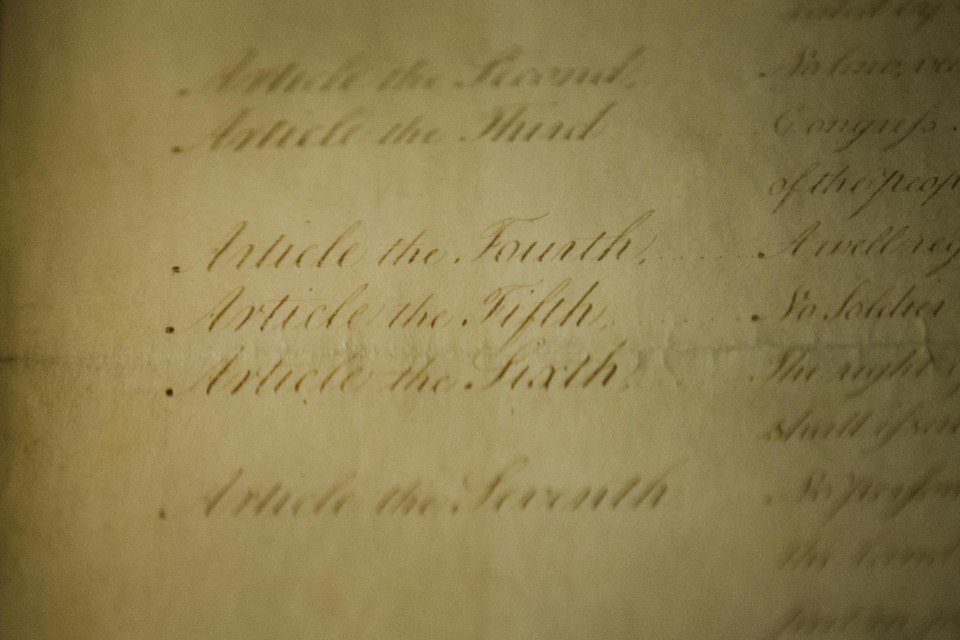 Article the Second,
No law, va
Article the Third
Congress
of the peop
Article the Fourth, ...... A well reg
Article the Fifth ...... No Soldier
Article the Sixth, The right
shall issu
Article the Seventh No person
the Land